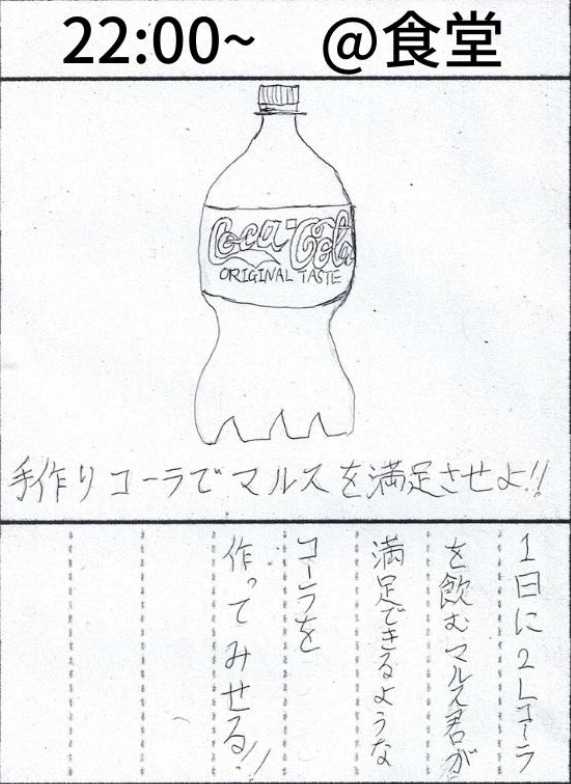 22:00~ @食堂
Coca-Cola
ORIGINAL TASTE
手作りコーラでマルスを満足させよ!!
1日に2Lコーラ
を飲むマルス君が
満足できるような
コーラを
作ってみせる!!